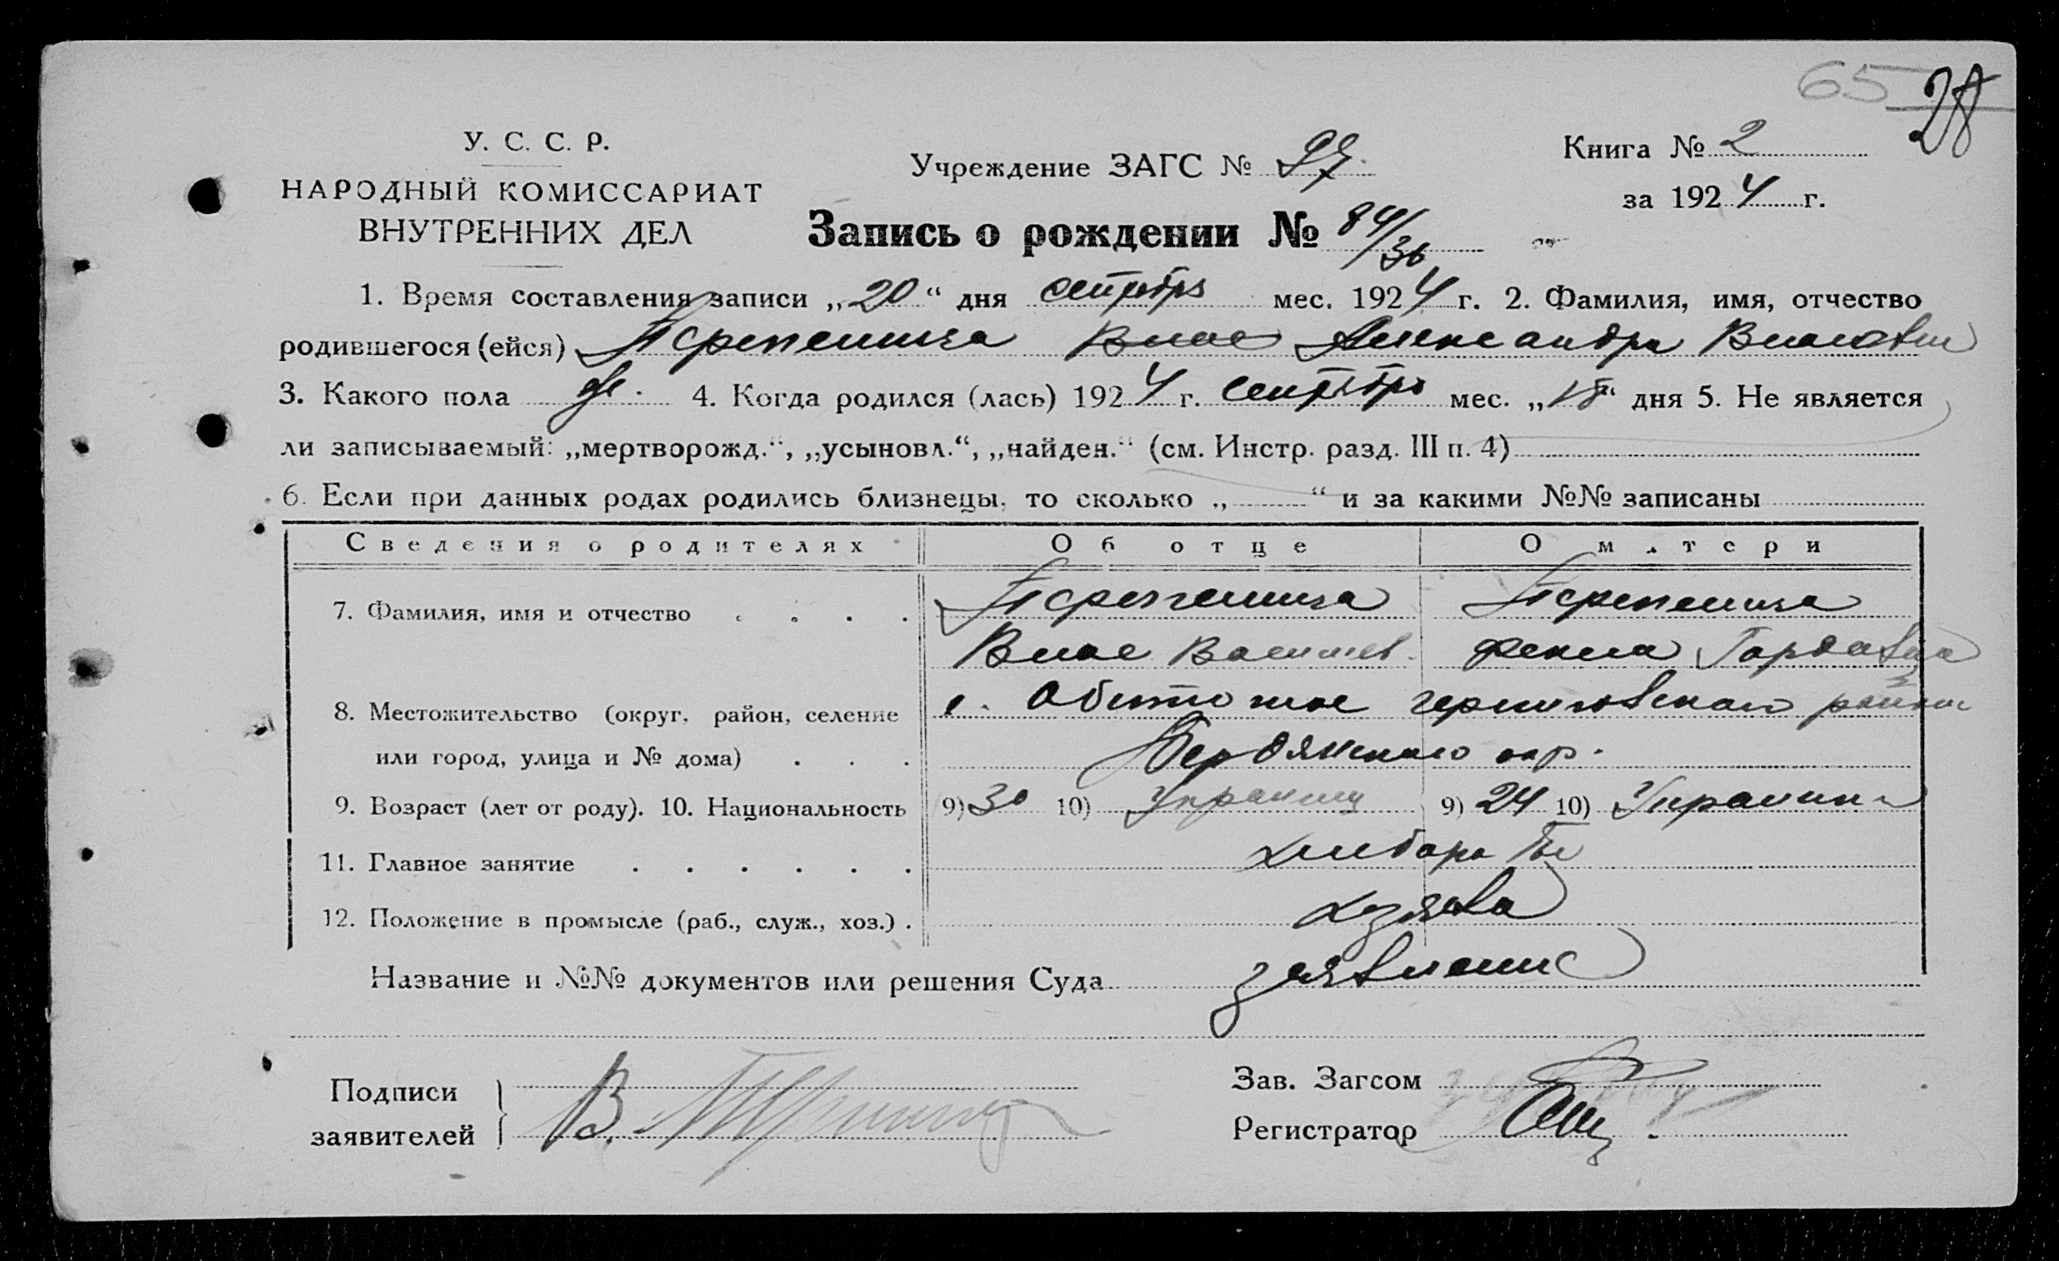 65 28
У. С. С. Р.
НАРОДНЫЙ КОМИССАРИАТ
ВНУТРЕННИХ ДЕЛ
Учреждение ЗАГС № 97.
Книга № 2
за 1924 г.
Запись о рождении № 84/36
1. Время составления записи „20“ дня сентября мес. 1924 г. 2. Фамилия, имя, отчество
родившегося (ейся) Перепелица Влас Александра Власовна
3. Какого пола ж. 4. Когда родился (лась) 1924 г. сентября мес. „18“ дня 5. Не является
ли записываемый: „мертворожд.“, „усыновл.“, „найден.“ (см. Инстр. разд. III п. 4)
6. Если при данных родах родились близнецы, то сколько „ “ и за какими №№ записаны
Сведения о родителях Об отце О матери
7. Фамилия, имя и отчество Перепелица Перепелица
Влас Васильев. Фекла Гордеевна
8. Местожительство (округ, район, селение с. Обиточное черниговского района
или город, улица и № дома) Бердянского окр.
9. Возраст (лет от роду). 10. Национальность 9) 30 10) Украинец 9) 24 10) Украинка
11. Главное занятие хлебороб
12. Положение в промысле (раб., служ., хоз.) хозяева
Название и №№ документов или решения Суда заявление
Подписи
заявителей
В.
Зав. Загсом
Регистратор